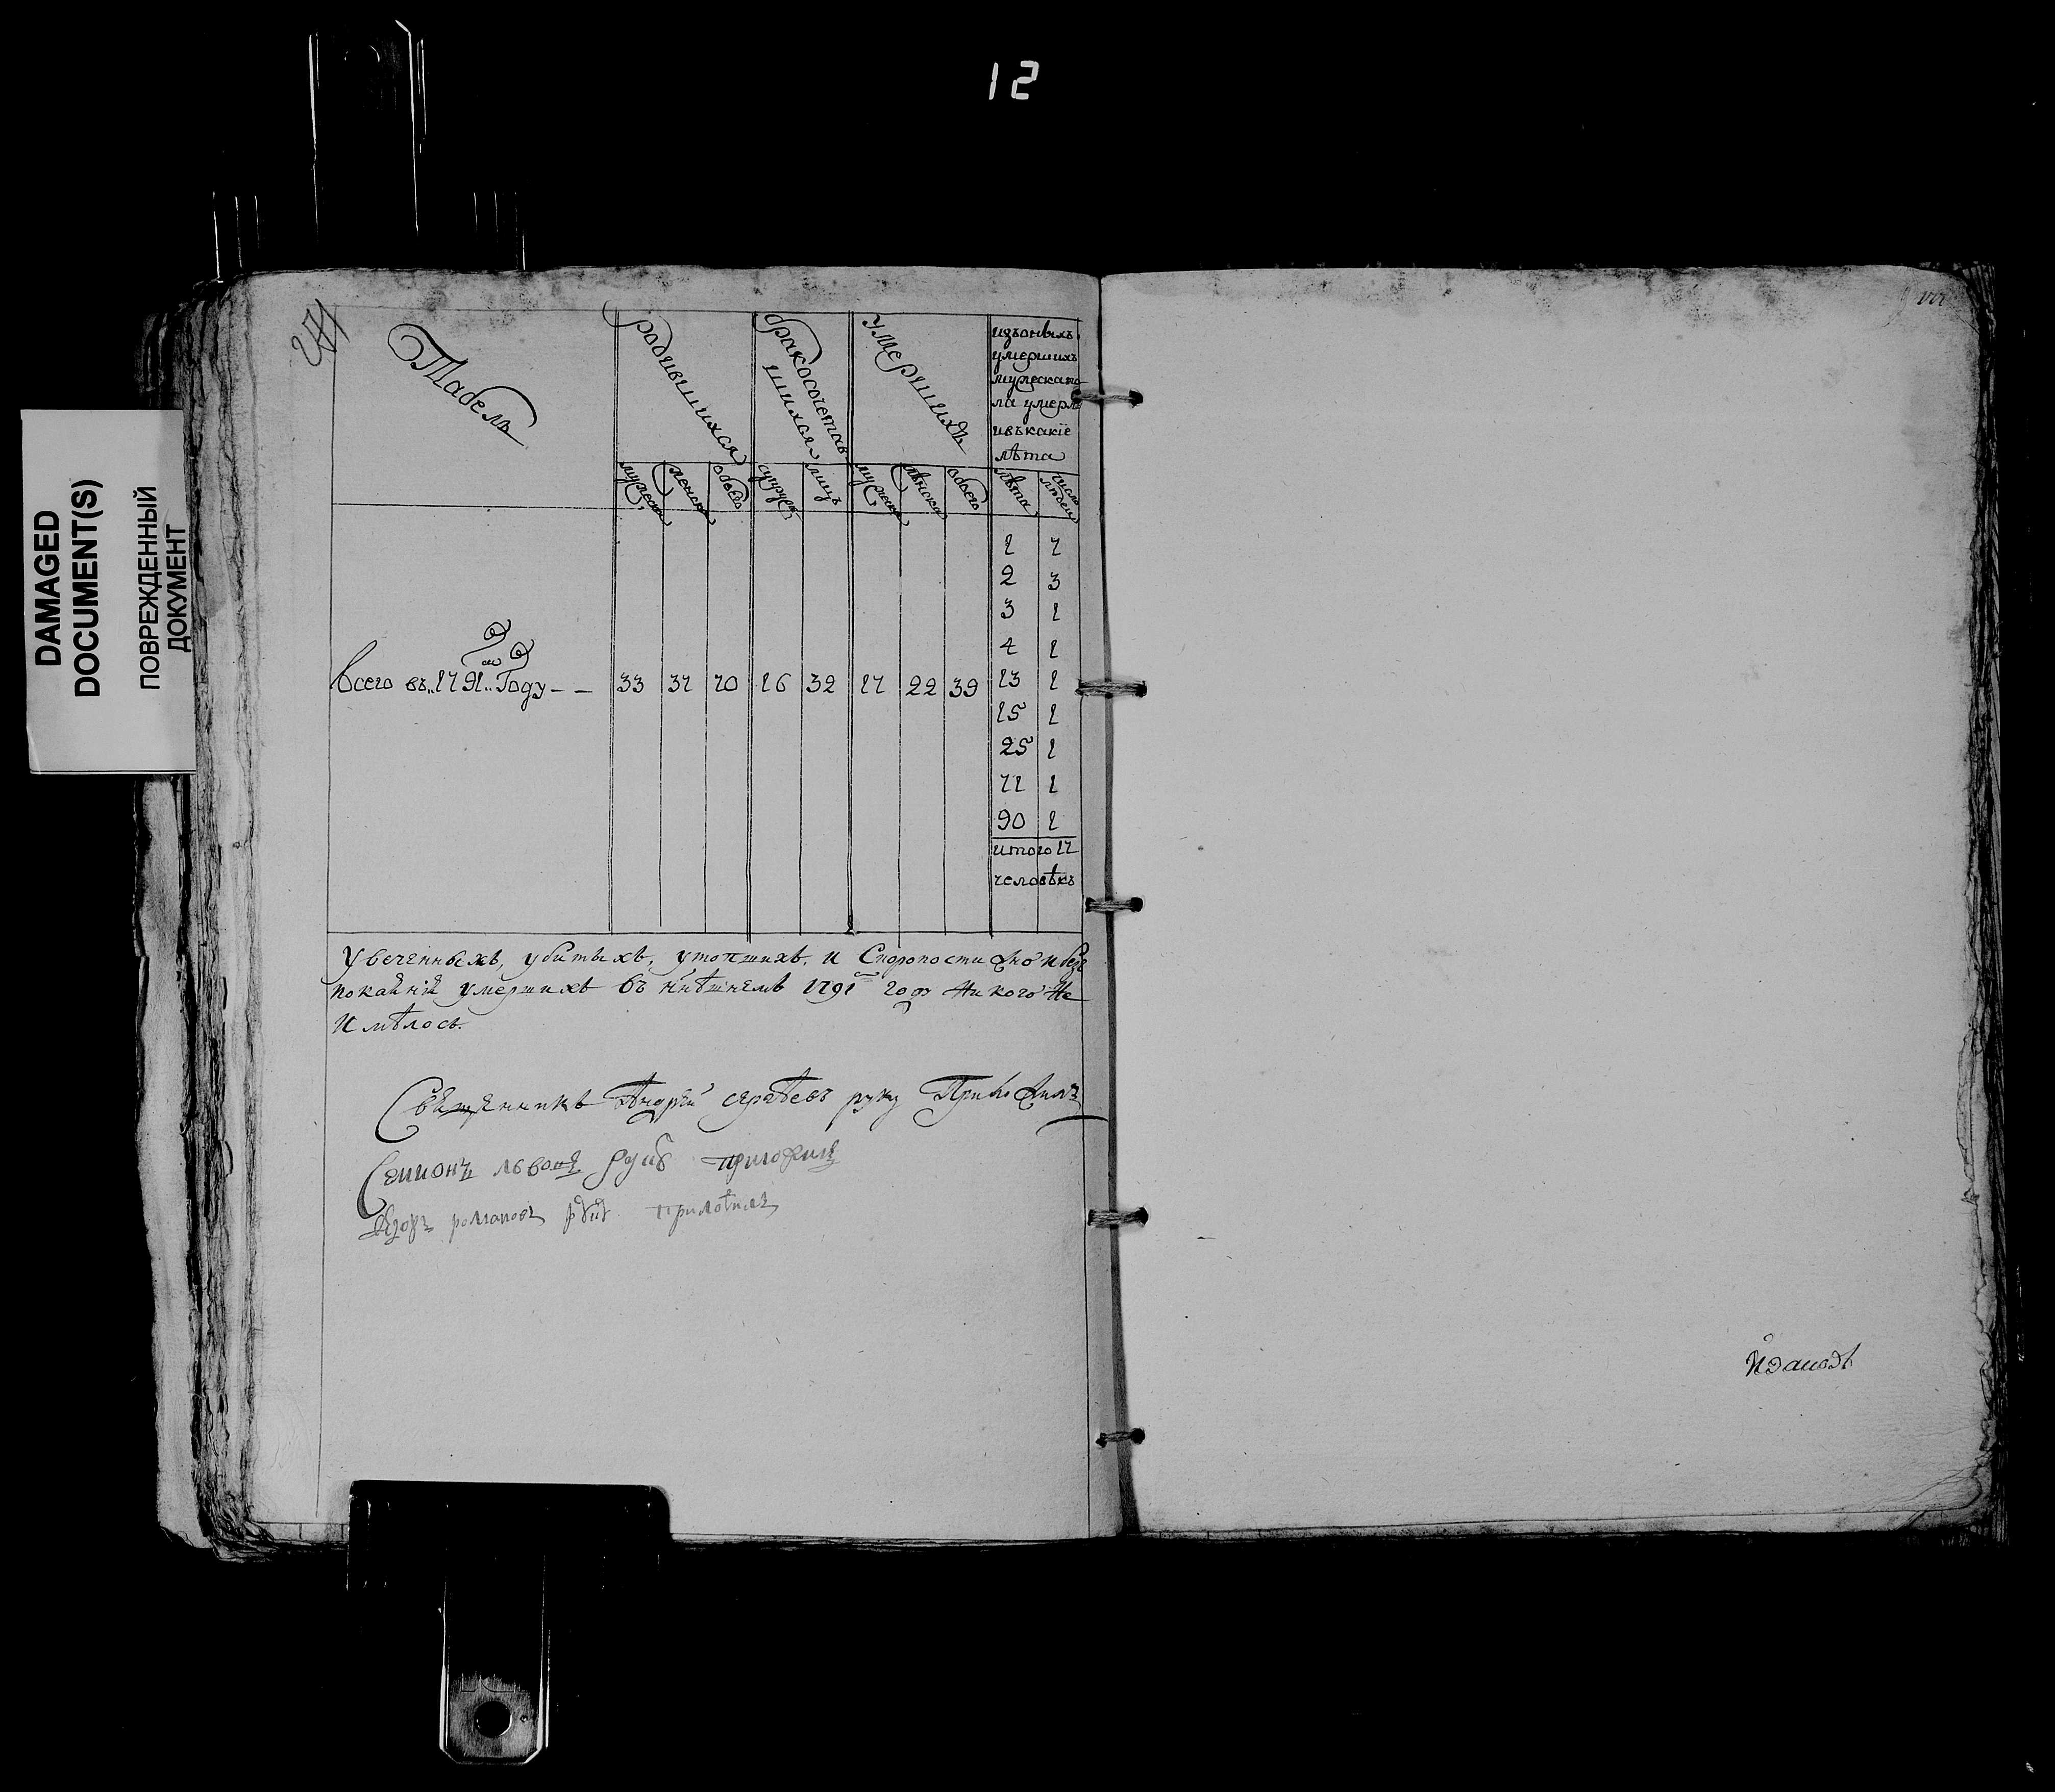 12
DAMAGED
DOCUMENT(S)
ПОВРЕЖДЕННЫЙ
ДОКУМЕНТ
Табель
родившихся
бракосочетав
шихся
умершихъ
изъоныхъ
умершихъ
мужескапо
ла умерло
ивъкакїе
лѣта
мужеска
женска
обоего
супруж
лицъ
мужеска
женска
обоего
лѣта
число людей
1 7
2 3
3 1
4 1
всего въ 1791 м Году – – 33 37 70 16 32 17 22 39 13 1
15 1
25 1
71 1
90 1
итого 17
человѣкъ
Увеченныхъ, убитыхъ, утопшихъ, и Скоропостижно и безъ
покаянїя умершихъ въ нн҃ѣшнемъ 1791 м году Никого Не
Имѣлось.
Священникъ Андрей сергѣевъ руку Приложилъ
Семионъ руку приложилъ
Егоръ романовъ руку приложилъ